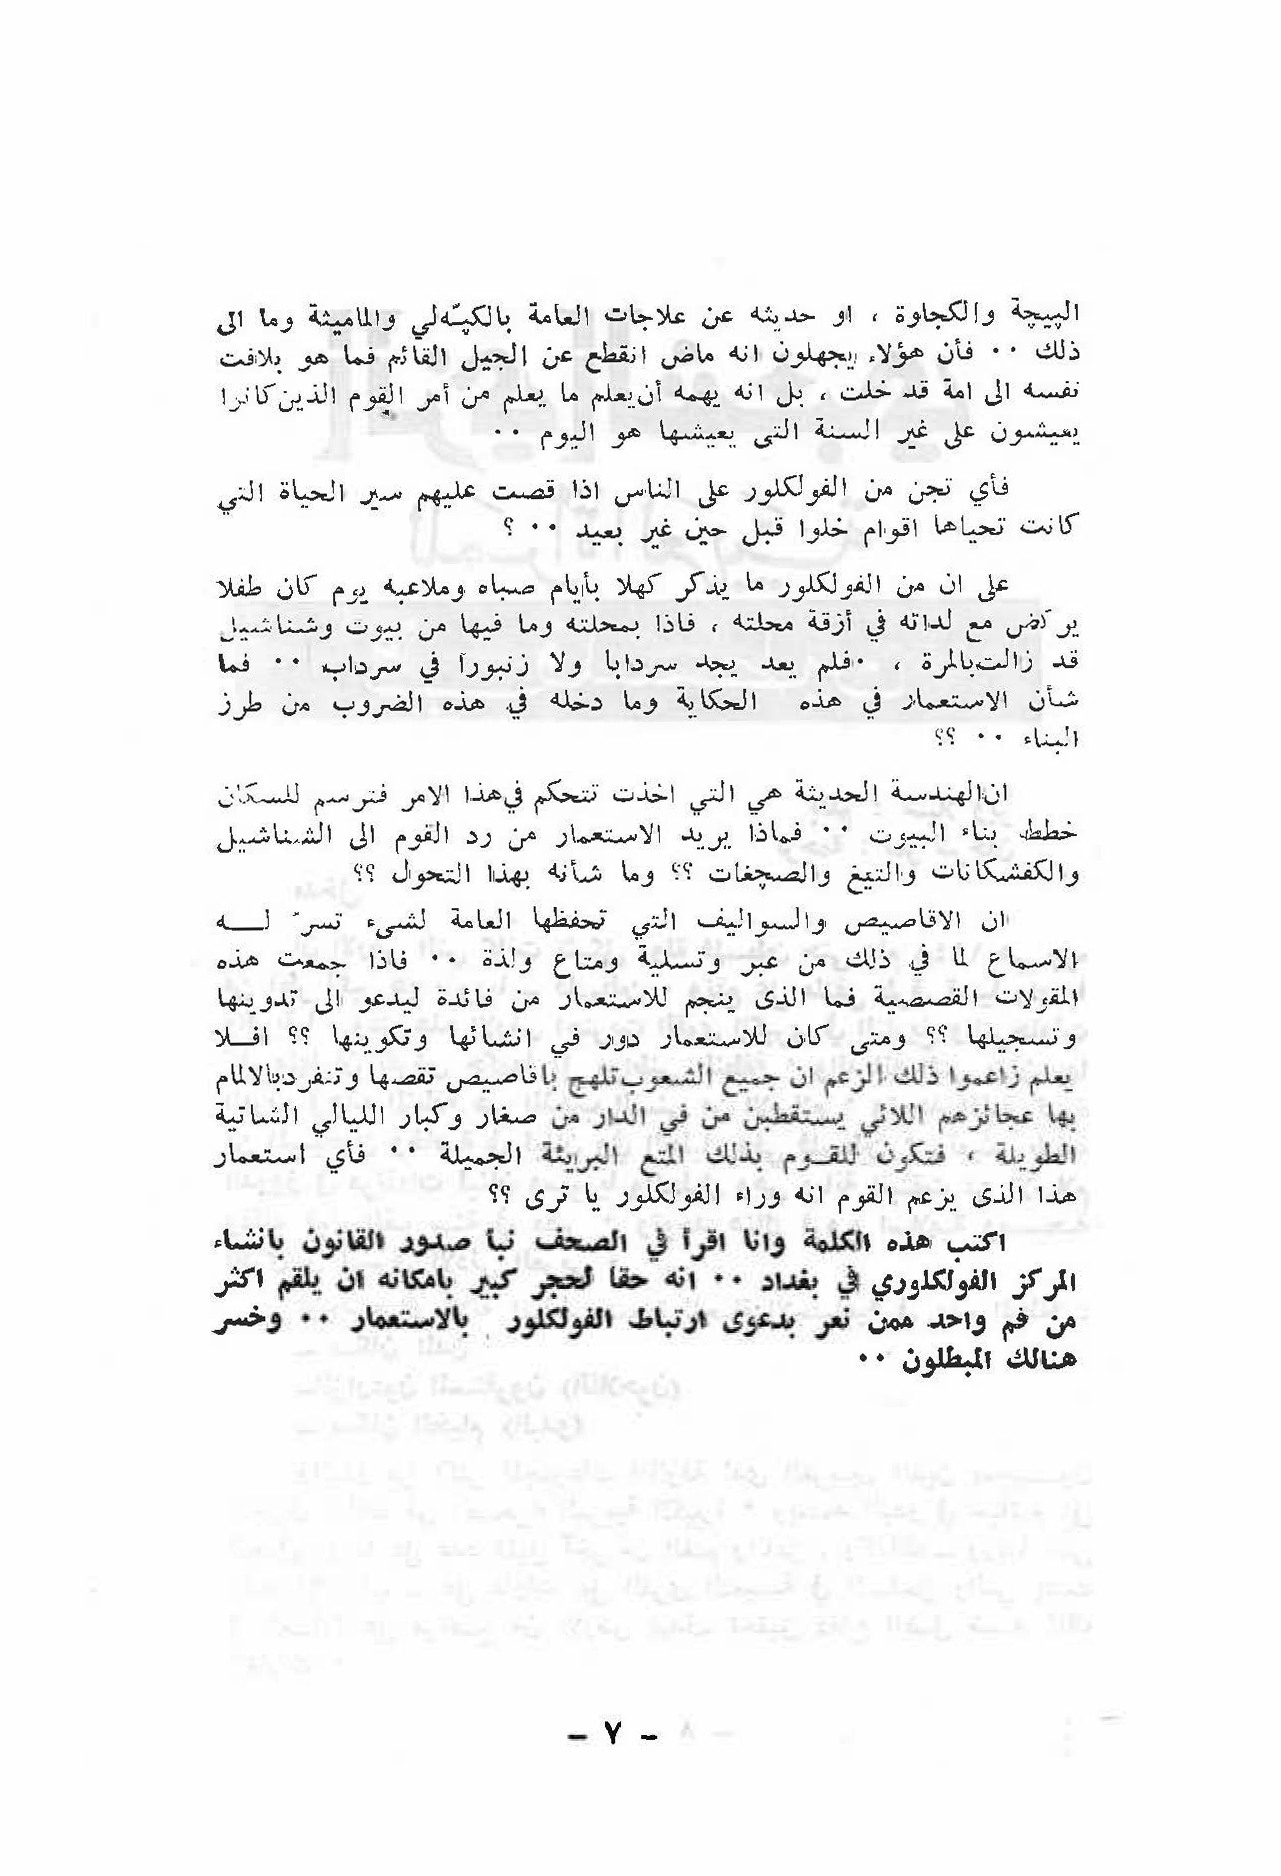 الپيچة والكجاوة ، او حديثه عن علاجات العامة بالكپـّهلي والماميثة وما الى
ذلك ٠٠ فأن هؤلاء يجهلون انه ماض انقطع عن الجيل القائم فما هو بلافت
نفسه الى امة قد خلت ، بل انه يهمه أن يعلم ما يعلم من أمر القوم الذين كانوا
يعيشون على غير السنة التى يعيشها هو اليوم ٠٠
فأي تجن من الفولكلور على الناس اذا قصت عليهم سير الحياة التي
كانت تحياها اقوام خلوا قبل حين غير بعيد ٠٠ ؟
على ان من الفولكلور ما يذكر كهلا بأيام صباه وملاعبه يوم كان طفلا
يركض مع لداته في أزقة محلته ، فاذا بمحلته وما فيها من بيوت وشناشيل
قد زالت بالمرة ، فلم يعد يجد سردابا ولا زنبورا في سرداب ٠٠ فما
شأن الاستعمار في هذه الحكاية وما دخله في هذه الضروب من طرز
البناء ٠٠ ؟؟
ان الهندسة الحديثة هي التي اخذت تتحكم في هذا الامر فترسم للسكان
خطط بناء البيوت ٠٠ فماذا يريد الاستعمار من رد القوم الى الشناشيل
والكفشكانات والتيغ والصچغات ؟؟ وما شأنه بهذا التحوال ؟؟
ان الاقاصيص والسواليف التي تحفظها العامة لشىء تسرّ لـــه
الاسماع لما في ذلك من عبر وتسلية ومتاع ولذة ٠٠ فاذا جمعت هذه
المقولات القصصية فما الذى ينجم للاستعمار من فائدة ليدعو الى تدوينها
وتسجيلها ؟؟ ومتى كان للاستعمار دور في انشائها وتكوينها ؟؟ افــلا
يعلم زاعموا ذلك الزعم ان جميع الشعوب تلهج باقاصيص تقصها وتنفرد بالالمام
بها عجائزهم اللائي يستقطبن من في الدار من صغار وكبار الليالي الشاتية
الطويلة ، فتكون للقــوم بذلك المتع البريئة الجميلة ٠٠ فأي استعمار
هذا الذى يزعم القوم انه وراء الفولكلور يا ترى ؟؟
اكتب هذه الكلمة وانا اقرأ في الصحف نبأ صدور القانون بانشاء
المركز الفولكلوري في بغداد ٠٠ انه حقا لحجر كبير بامكانه ان يلقم اكثر
من فم واحد ممن نعر بدعوى ارتباط الفولكلور بالاستعمار ٠٠ وخسر
هنالك المبطلون ٠٠
– ٧ –